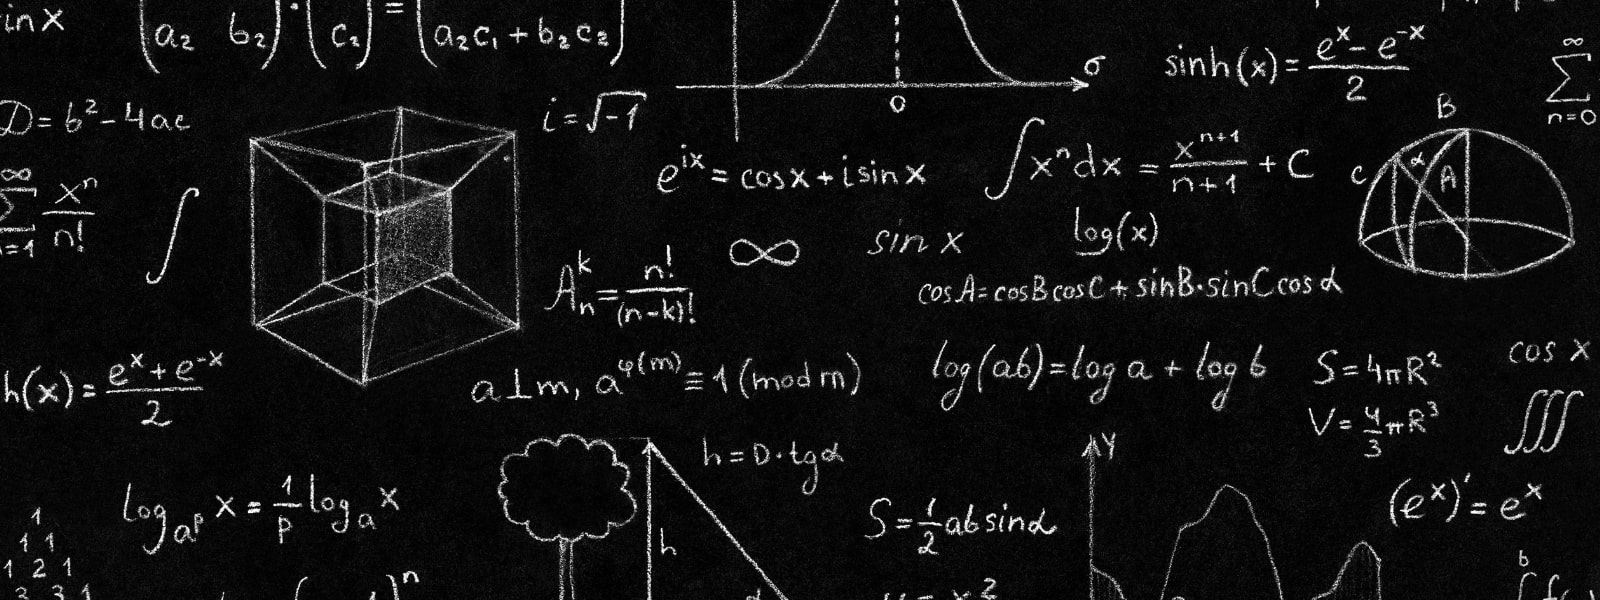 in x
(a₂ b₂) · (c₂) = (a₂c₁ + b₂c₂)
σ
0
sinh(x) = (eˣ - e⁻ˣ)/2
∞ Σ n=0
D = b² - 4ac
i = √-1
eⁱˣ = cos x + i sin x
∫xⁿdx = xⁿ⁺¹/(n+1) + C
B
C
α
A
∞ Σ n=1 xⁿ/n!
∫
Aₙᵏ = n!/(n-k)!
∞
sin x
log(x)
cos A = cos B cos C + sin B · sin C cos α
h(x) = (eˣ + e⁻ˣ)/2
a⊥m, a^φ(m) ≡ 1 (mod m)
log(ab) = log a + log b
S = 4πR²
V = 4/3 πR³
cos x
∭
h = D · tg α
Y
log_aᵖ x = 1/p logₐ x
S = 1/2 ab sin α
(eˣ)' = eˣ
1
1 1
1 2 1
3 3 1
h
n
x²
b
∫ f(